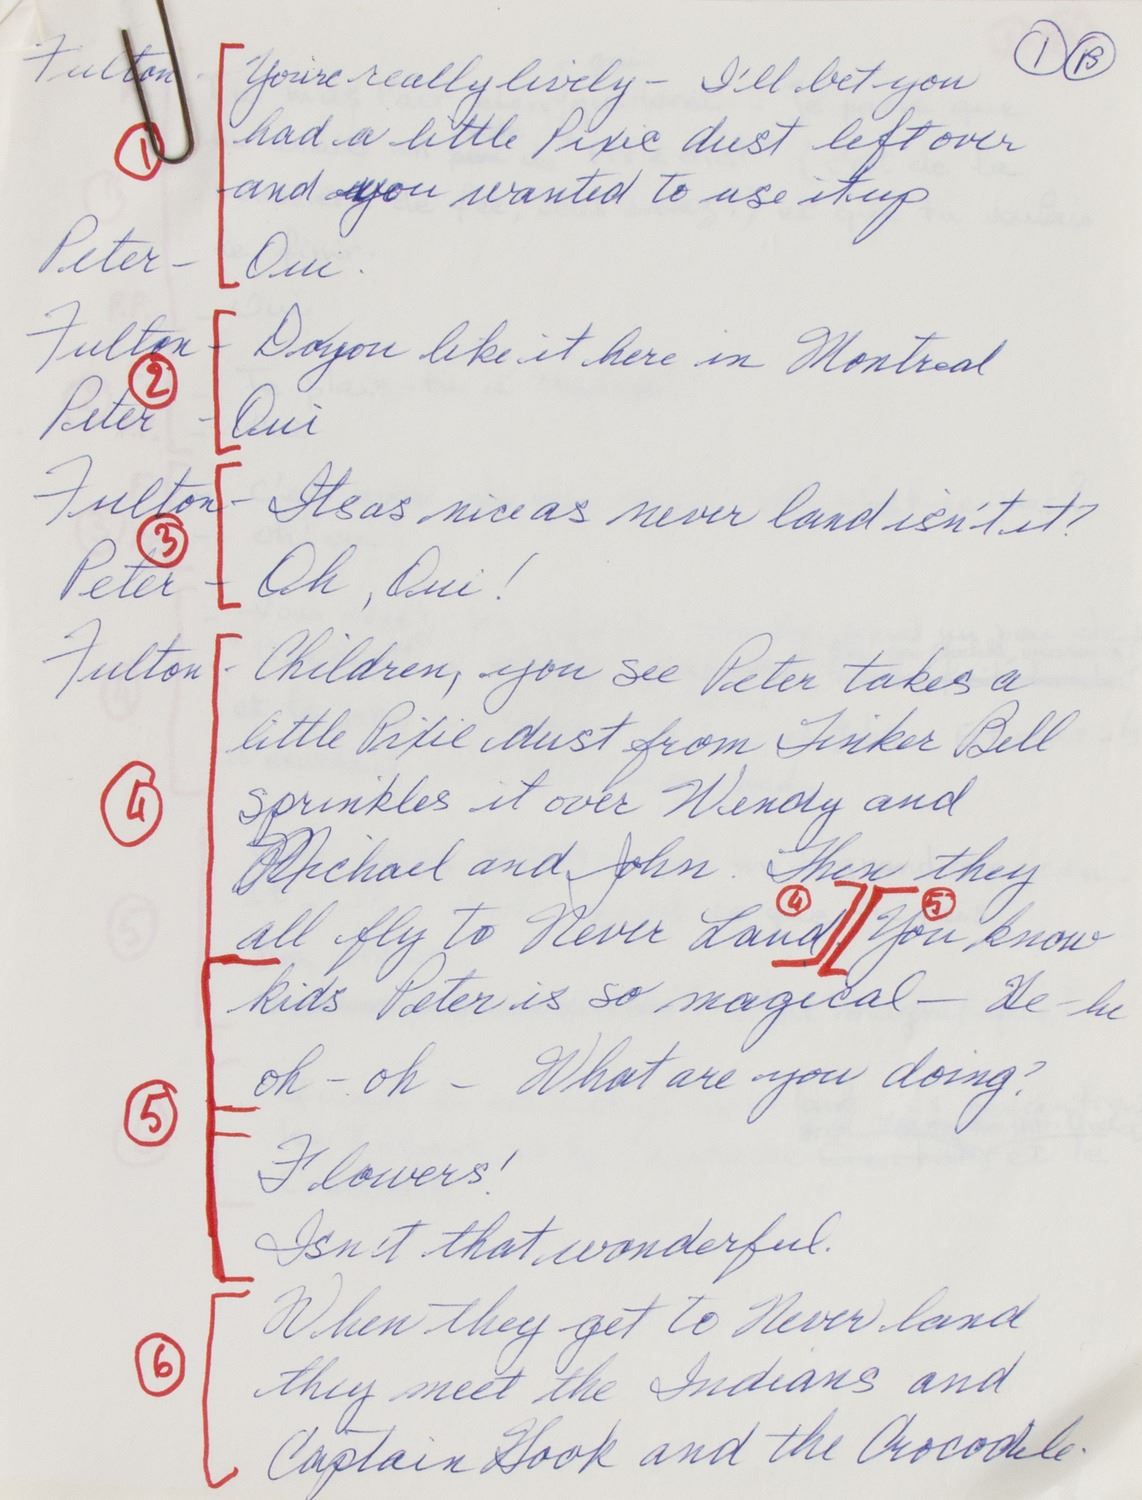 ① B
Fulton - You're really lively - I'll bet you
① had a little Pixie dust left over
and you wanted to use it up
Peter - Oui.
Fulton - Do you like it here in Montreal
②
Peter - Oui
Fulton - Its as nice as never land isn't it?
③
Peter - Oh, Oui!
Fulton - Children, you see Peter takes a
little Pixie dust from Tinker Bell
④ sprinkles it over Wendy and
Michael and John. Then they
④ ⑤
all fly to Never Land You know
kids Peter is so magical - He-he
oh - oh - What are you doing?
⑤
Flowers!
Isn't that wonderful.
When they get to Never land
⑥ they meet the Indians and
Captain Hook and the Crocodile.